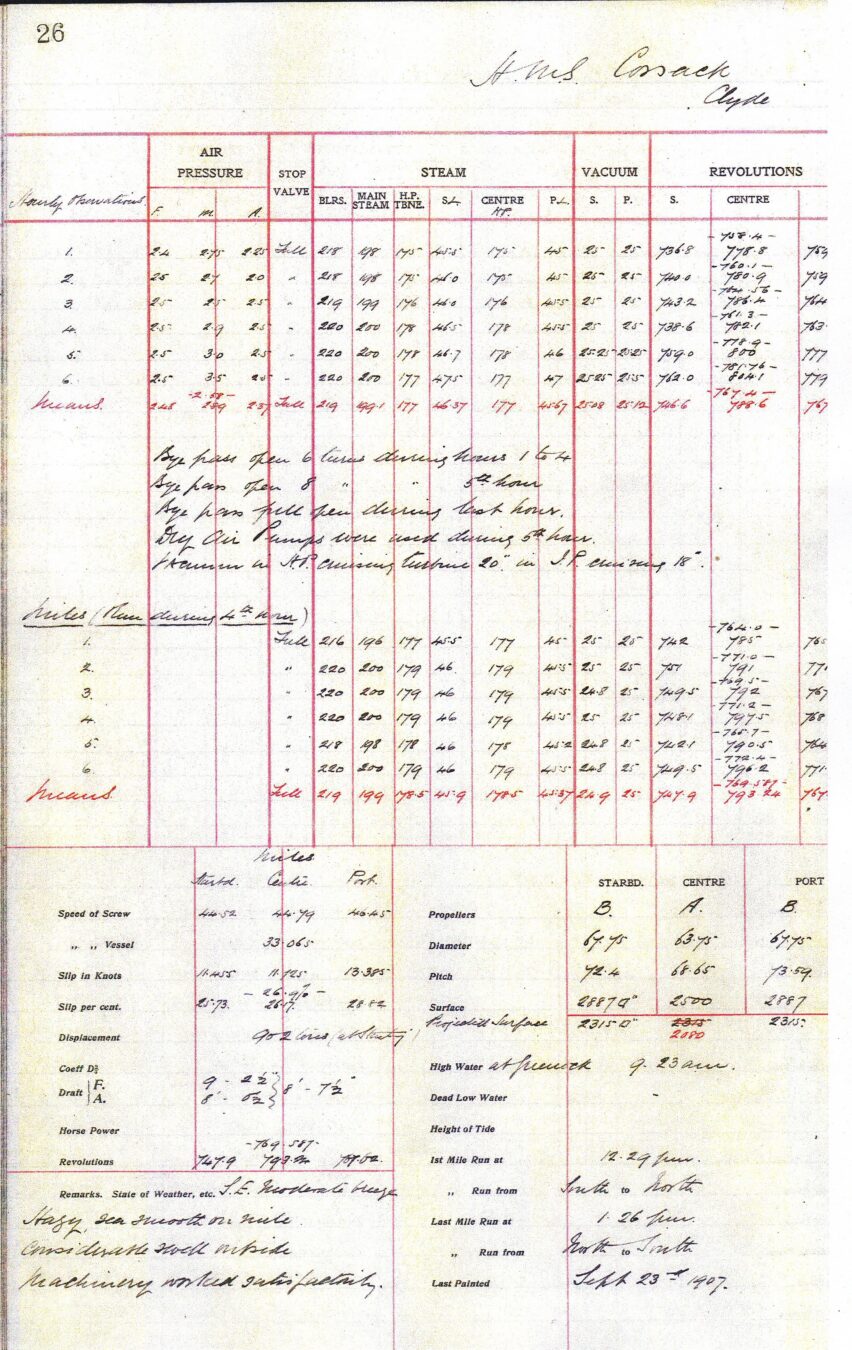 26
H.M.S. Cossack
Clyde
AIR PRESSURE STOP VALVE STEAM VACUUM REVOLUTIONS
Hourly Observations F. M. A. BLRS. MAIN STEAM H.P. TBNE. S.L. CENTRE H.P. P.L. S. P. S. CENTRE
- 758.4 -
1. 2.4 2.75 2.25 Full 218 198 175 45.5 175 45 25 25 736.8 778.8 759
- 760.1 -
2. 2.5 2.7 2.0 " 218 198 175 46.0 175 45 25 25 740.0 780.9 759
- 764.56 -
3. 2.5 2.5 2.5 " 219 199 176 46.0 176 45.5 25 25 743.2 786.4 764
- 761.3 -
4. 2.5 2.9 2.5 " 220 200 178 46.5 178 45.5 25 25 738.6 782.1 763.
- 778.9 -
5. 2.5 3.0 2.5 " 220 200 178 46.7 178 46 25.25 25.25 759.0 800 777
- 781.76 -
6. 2.5 3.5 2.5 " 220 200 177 47.5 177 47 25.25 25.5 762.0 804.1 779
- 2.58 - - 767.4 -
Means. 2.48 2.89 2.37 Full 219 199.1 177 46.37 177 45.67 25.08 25.12 746.6 788.6 767
Bye pass open 6 turns during hours 1 to 4
Bye pass open 8 " " 5th hour
Bye pass full open during last hour.
Dry Air Pumps were used during 5th hour.
Vacuum in H.P. cruising turbine 20" in I.P. cruising 18".
Miles (Run during 4th hour)
- 764.0 -
1. Full 216 196 177 45.5 177 45 25 25 742 785 765
- 771.0 -
2. " 220 200 179 46 179 45.5 25 25 751 791 771
- 769.5 -
3. " 220 200 179 46 179 45.5 24.8 25 749.5 792 767
- 771.2 -
4. " 220 200 179 46 179 45.5 25 25 748.1 797.5 768
- 765.7 -
5. " 218 198 178 46 178 45.2 24.8 25 742.1 790.5 764
- 772.4 -
6. " 220 200 179 46 179 45.5 24.8 25 749.5 796.2 771.
- 769.587 -
Means Full 219 199 178.5 45.9 178.5 45.37 24.9 25 747.9 793.24 767.
Miles
Starbd. Centre. Port.
Speed of Screw 44.52 44.79 46.45
" " Vessel 33.065
Slip in Knots 11.455 11.725 13.385
- 26.9% -
Slip per cent. 25.73. 26.17. 28.82
Displacement 902 tons (at Starting)
Coeff D⅔
Draft F. 9 - 2½" 8' - 7½"
A. 8' - 0½
Horse Power
- 769.587 -
Revolutions 747.9 793.24
Remarks. State of Weather, etc. S.E. Moderate breeze
Hazy, sea smooth on mile.
Considerable swell outside
Machinery worked satisfactorily.
STARBD. CENTRE PORT
Propellers B. A. B.
Diameter 67.75 63.75 67.75
Pitch 72.4 68.65 73.59
Surface 2887 □" 2500 2887
Projected Surface 2315 □" 2315 2315.
2080
High Water at Greenock 9. 23 am.
Dead Low Water -
Height of Tide
1st Mile Run at 12.29 pm.
" Run from South to North
Last Mile Run at 1.26 pm.
" Run from North to South
Last Painted Sept 23rd 1907.